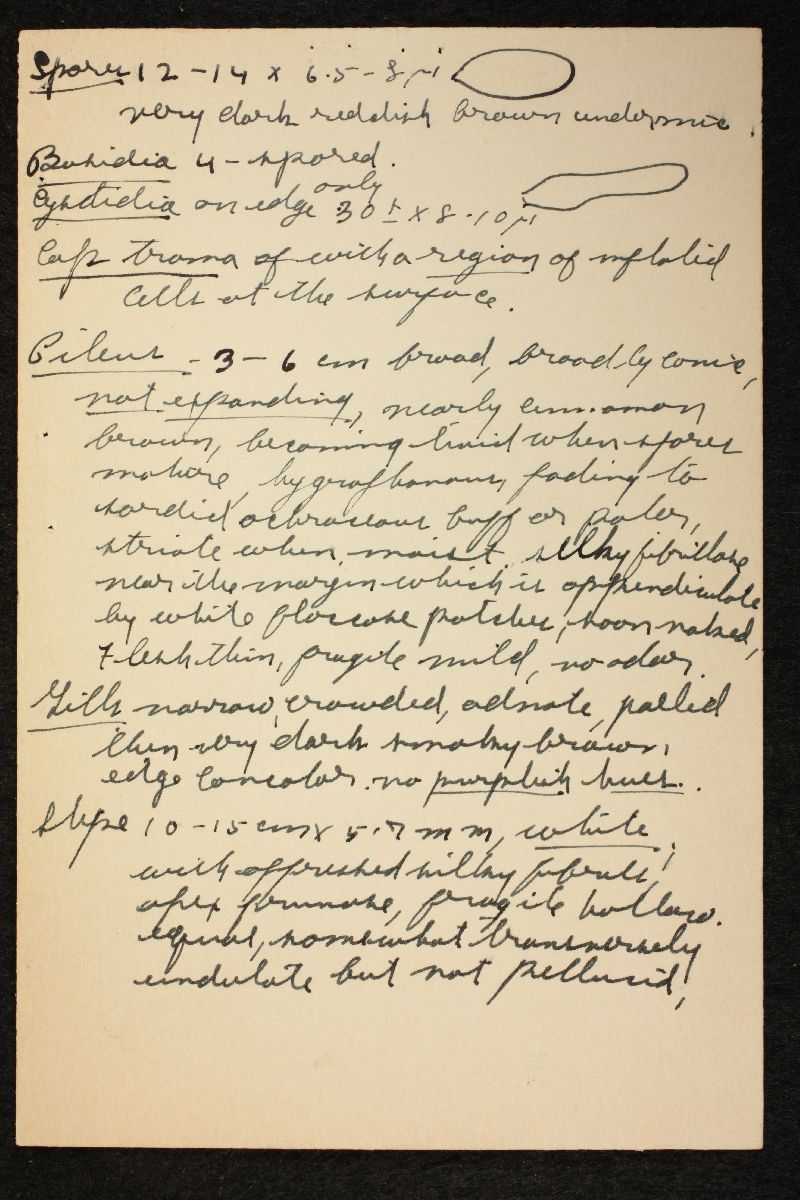 Spores 12-14 x 6.5-8 µ
very dark reddish brown under mic.
Basidia 4-spored.
Cystidia on edge only 30± x 8-10 µ
Cap trama of with a region of inflated
cells at the surface.
Pileus - 3-6 cm broad, broadly conic,
not expanding, nearly cinnamon
brown, becoming livid when spores
mature, hygrophanous, fading to
sordid ochraceous buff or paler,
striate when moist, silky fibrillose
near the margin which is appendiculate
by white floccose patches, soon naked,
Flesh thin, fragile mild, no odor.
Gills narrow, crowded, adnate, pallid
then very dark smoky brown,
edge concolor. no purplish hues.
Stipe 10-15 cm x 5-7 mm, white,
with appressed silky fibrils,
apex pruinose, fragile hollow.
equal, somewhat transversely
undulate but not pellucid,